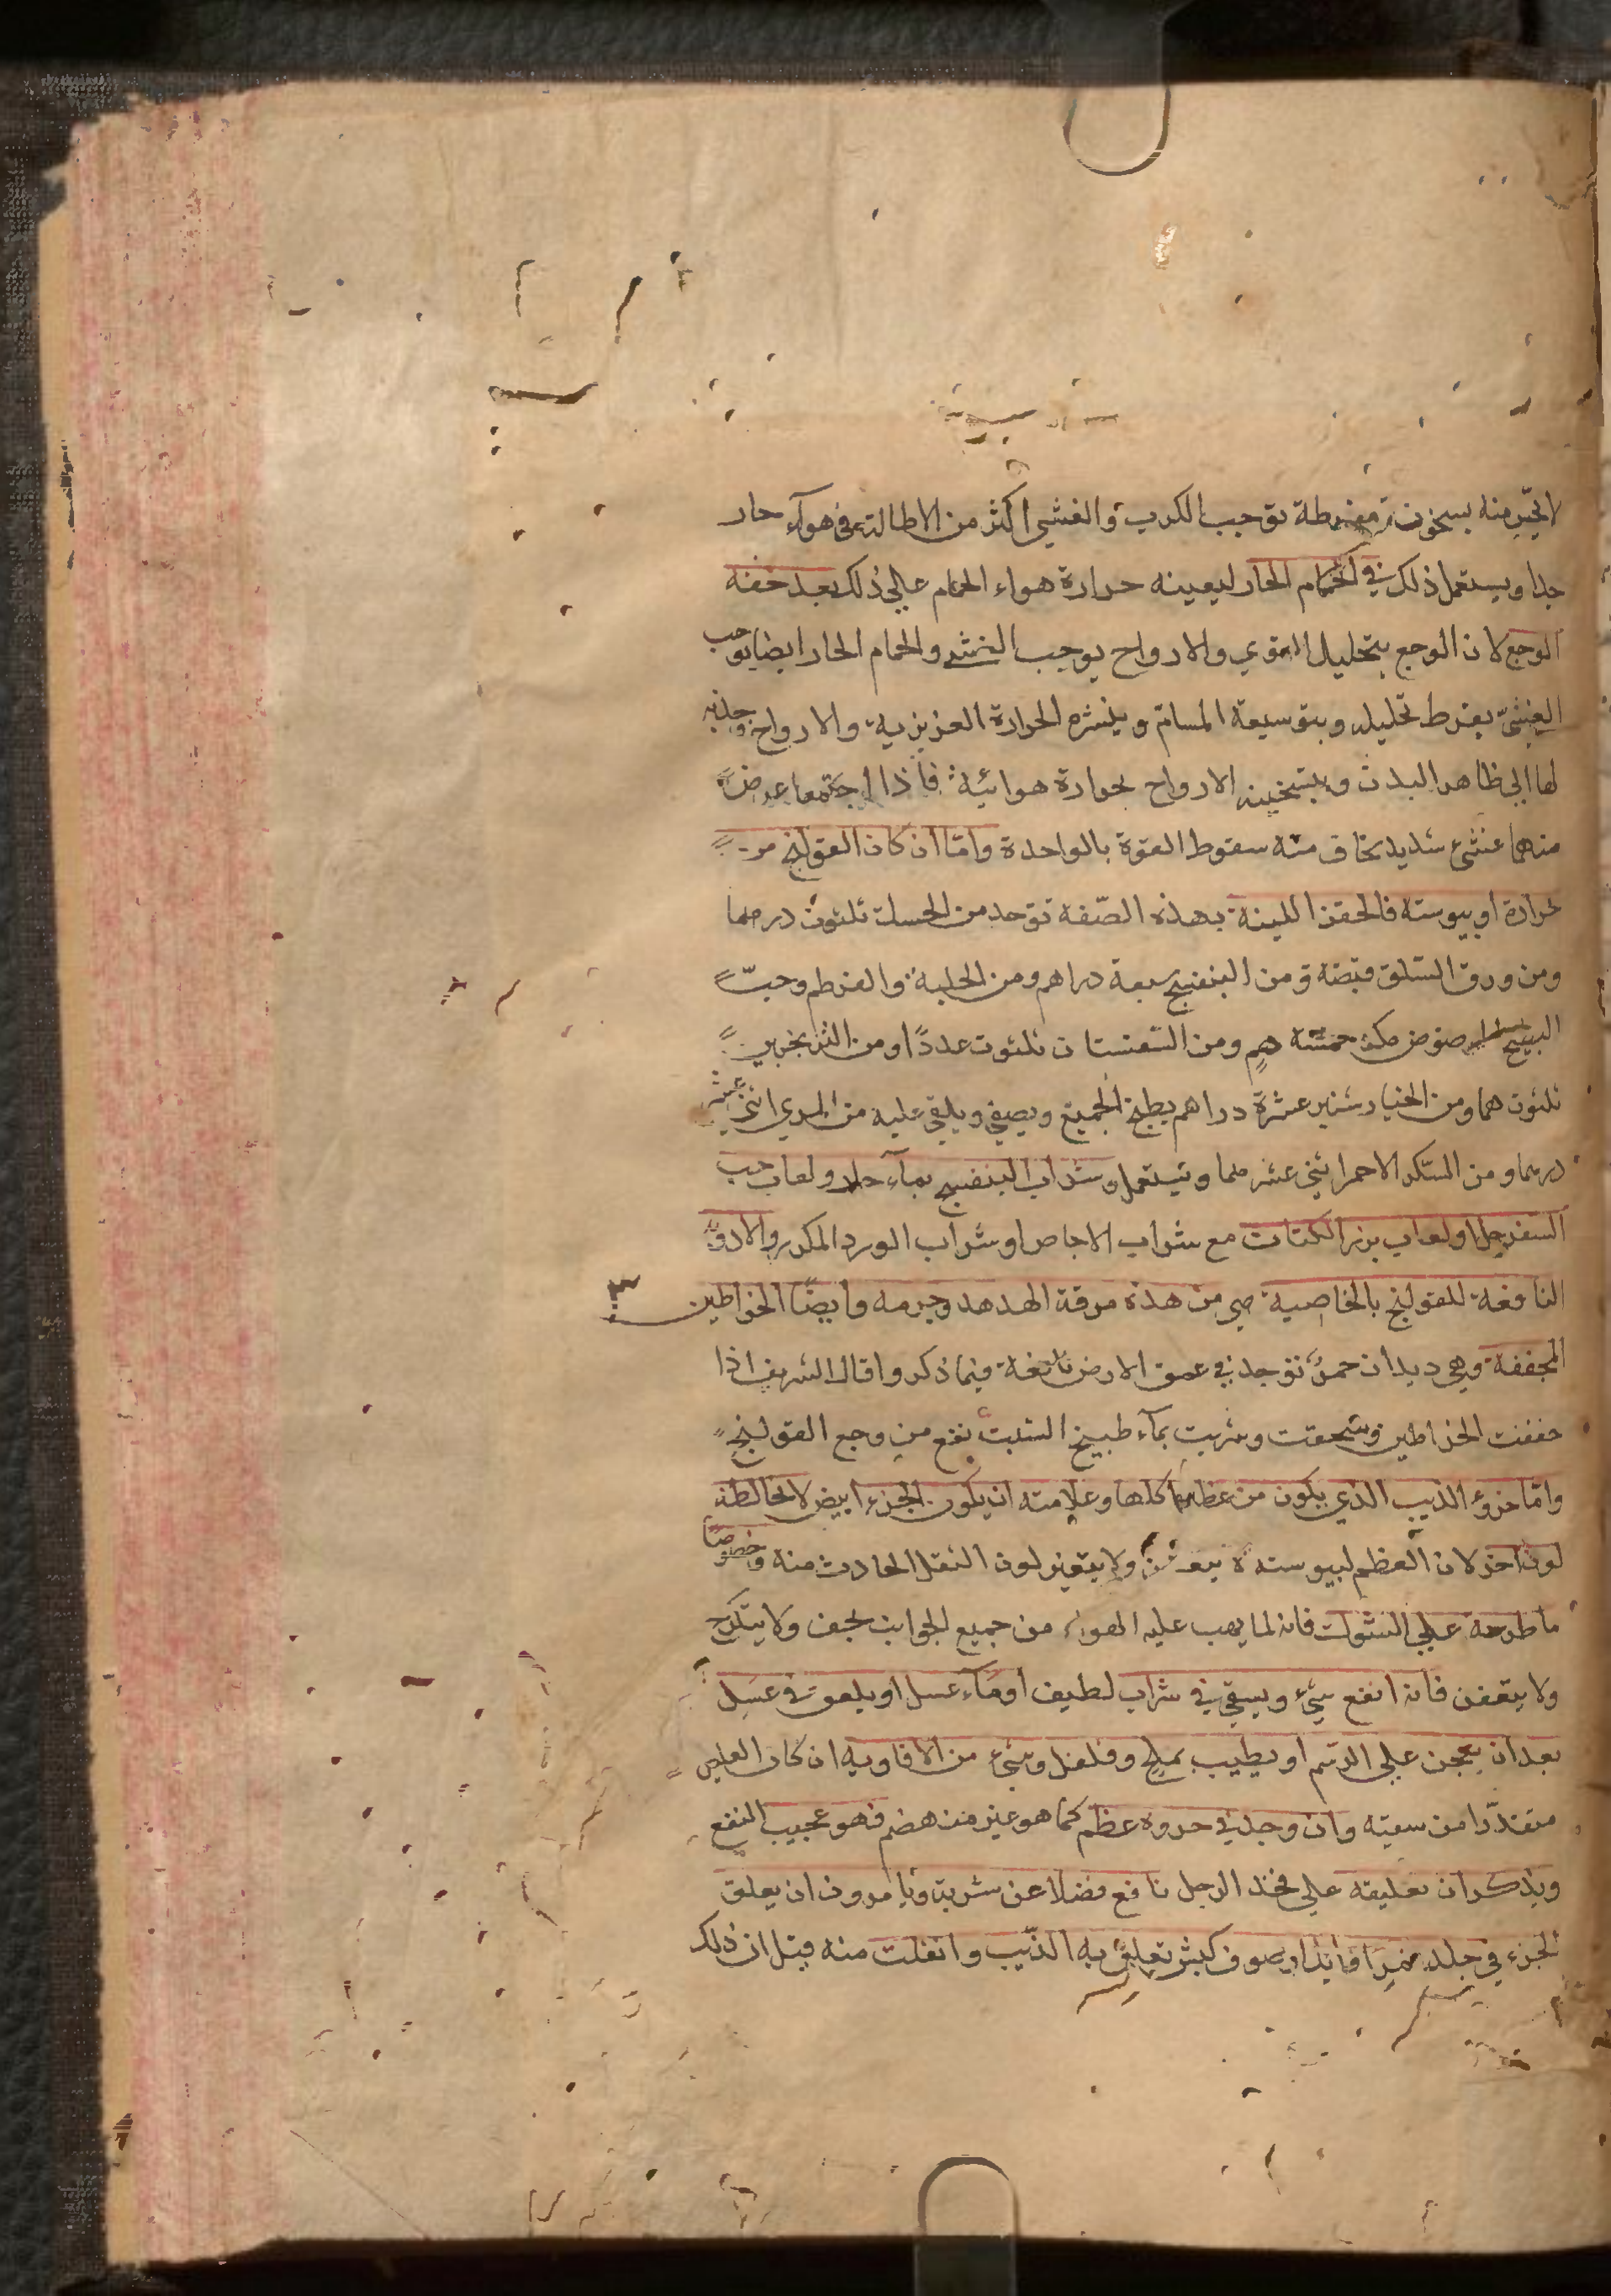 منه بسخونة مفرطة توجب الكرب والغشي اكثر من الاطالة في هوآء حار
جدا ويستعمل ذلك في الحمام الحار ليعينه حرارة هواء الحمام علي ذلك بعد خفة
الوجع لان الوجع بتحليل القوي والارواح يوجب الغشي والحمام الحار ايضا يوجب
الغشي بفرط تحليله وبتوسيعه المسام وينشره الحرارة الغريزية والارواح وجذبه
لها الي ظاهر البدن وبتسخينه الارواح بحرارة هوائية فاذا اجتمعا عرض
منهما غشي شديد يخاف منه سقوط القوة بالواحدة وامّا ان كان القولنج من
حرارة او يبوسته فالحقن اللينة بهذه الصّفة توخد من الحسك ثلثون درهما
ومن ورق السلق قبضة ومن البنفسج سبعة دراهم ومن الحلبة والقرطم وحبّ
البطيخ مرضوض خمسة ومن السفستان ثلثون عددًا ومن الترنجبين
ثلثون هما ومن الخيار شنبر عشرة دراهم يطبخ الجميع ويصفي ويلقي عليه من المري اثني عشر
درهما ومن السكر الاحمر اثني عشر هما ويستعمل وشراب البنفسج بمآء حار ولعاب حب
السفرجل او لعاب بزر الكتان مع شراب الاجاص او شراب الورد المكرر والادوية
النافعة للقولنج بالخاصية هي من هذه مرقة الهدهد وجرمه وايضًا الخراطين
المجففة وهي ديدان حمر توجد في عمق الارض نافعة فيما ذكروا قال الشريف اذا
جففت الخراطين وسحقت وشربت بمآء طبيخ الشبث نفع من وجع القولنج
وامّا خروء الذيب الذي يكون من عظام اكلها وعلامته ان يكون الجزء ابيض لا يخالطه
لون اخر لان العظم ليبوسته ولا يتغير لون الثفل الحادث منه وخصوصًا
ما طرحه علي الشوك فانه لما يهب عليه الهواء من جميع الجوانب يجف ولا يتكرج
ولا يتعفن فانه انفع شيء ويسقي في شراب لطيف او مآء عسل او يلعق في عسل
بعد ان يعجن علي الرسم او يطيب بملح وفلفل وشيء من الافاويه ان كان العليل
متقذّرا من سقيه وان وجد في خروه عظم كما هو غير منهضم فهو عجيب النفع
ويذكر ان تعليقه علي فخذ الرجل نافع فضلا عن شربه ويامرون ان يعلق
الجزء في جلد او صوف كبش تعلق به الذّيب وانفلت منه قبل ان ذلك